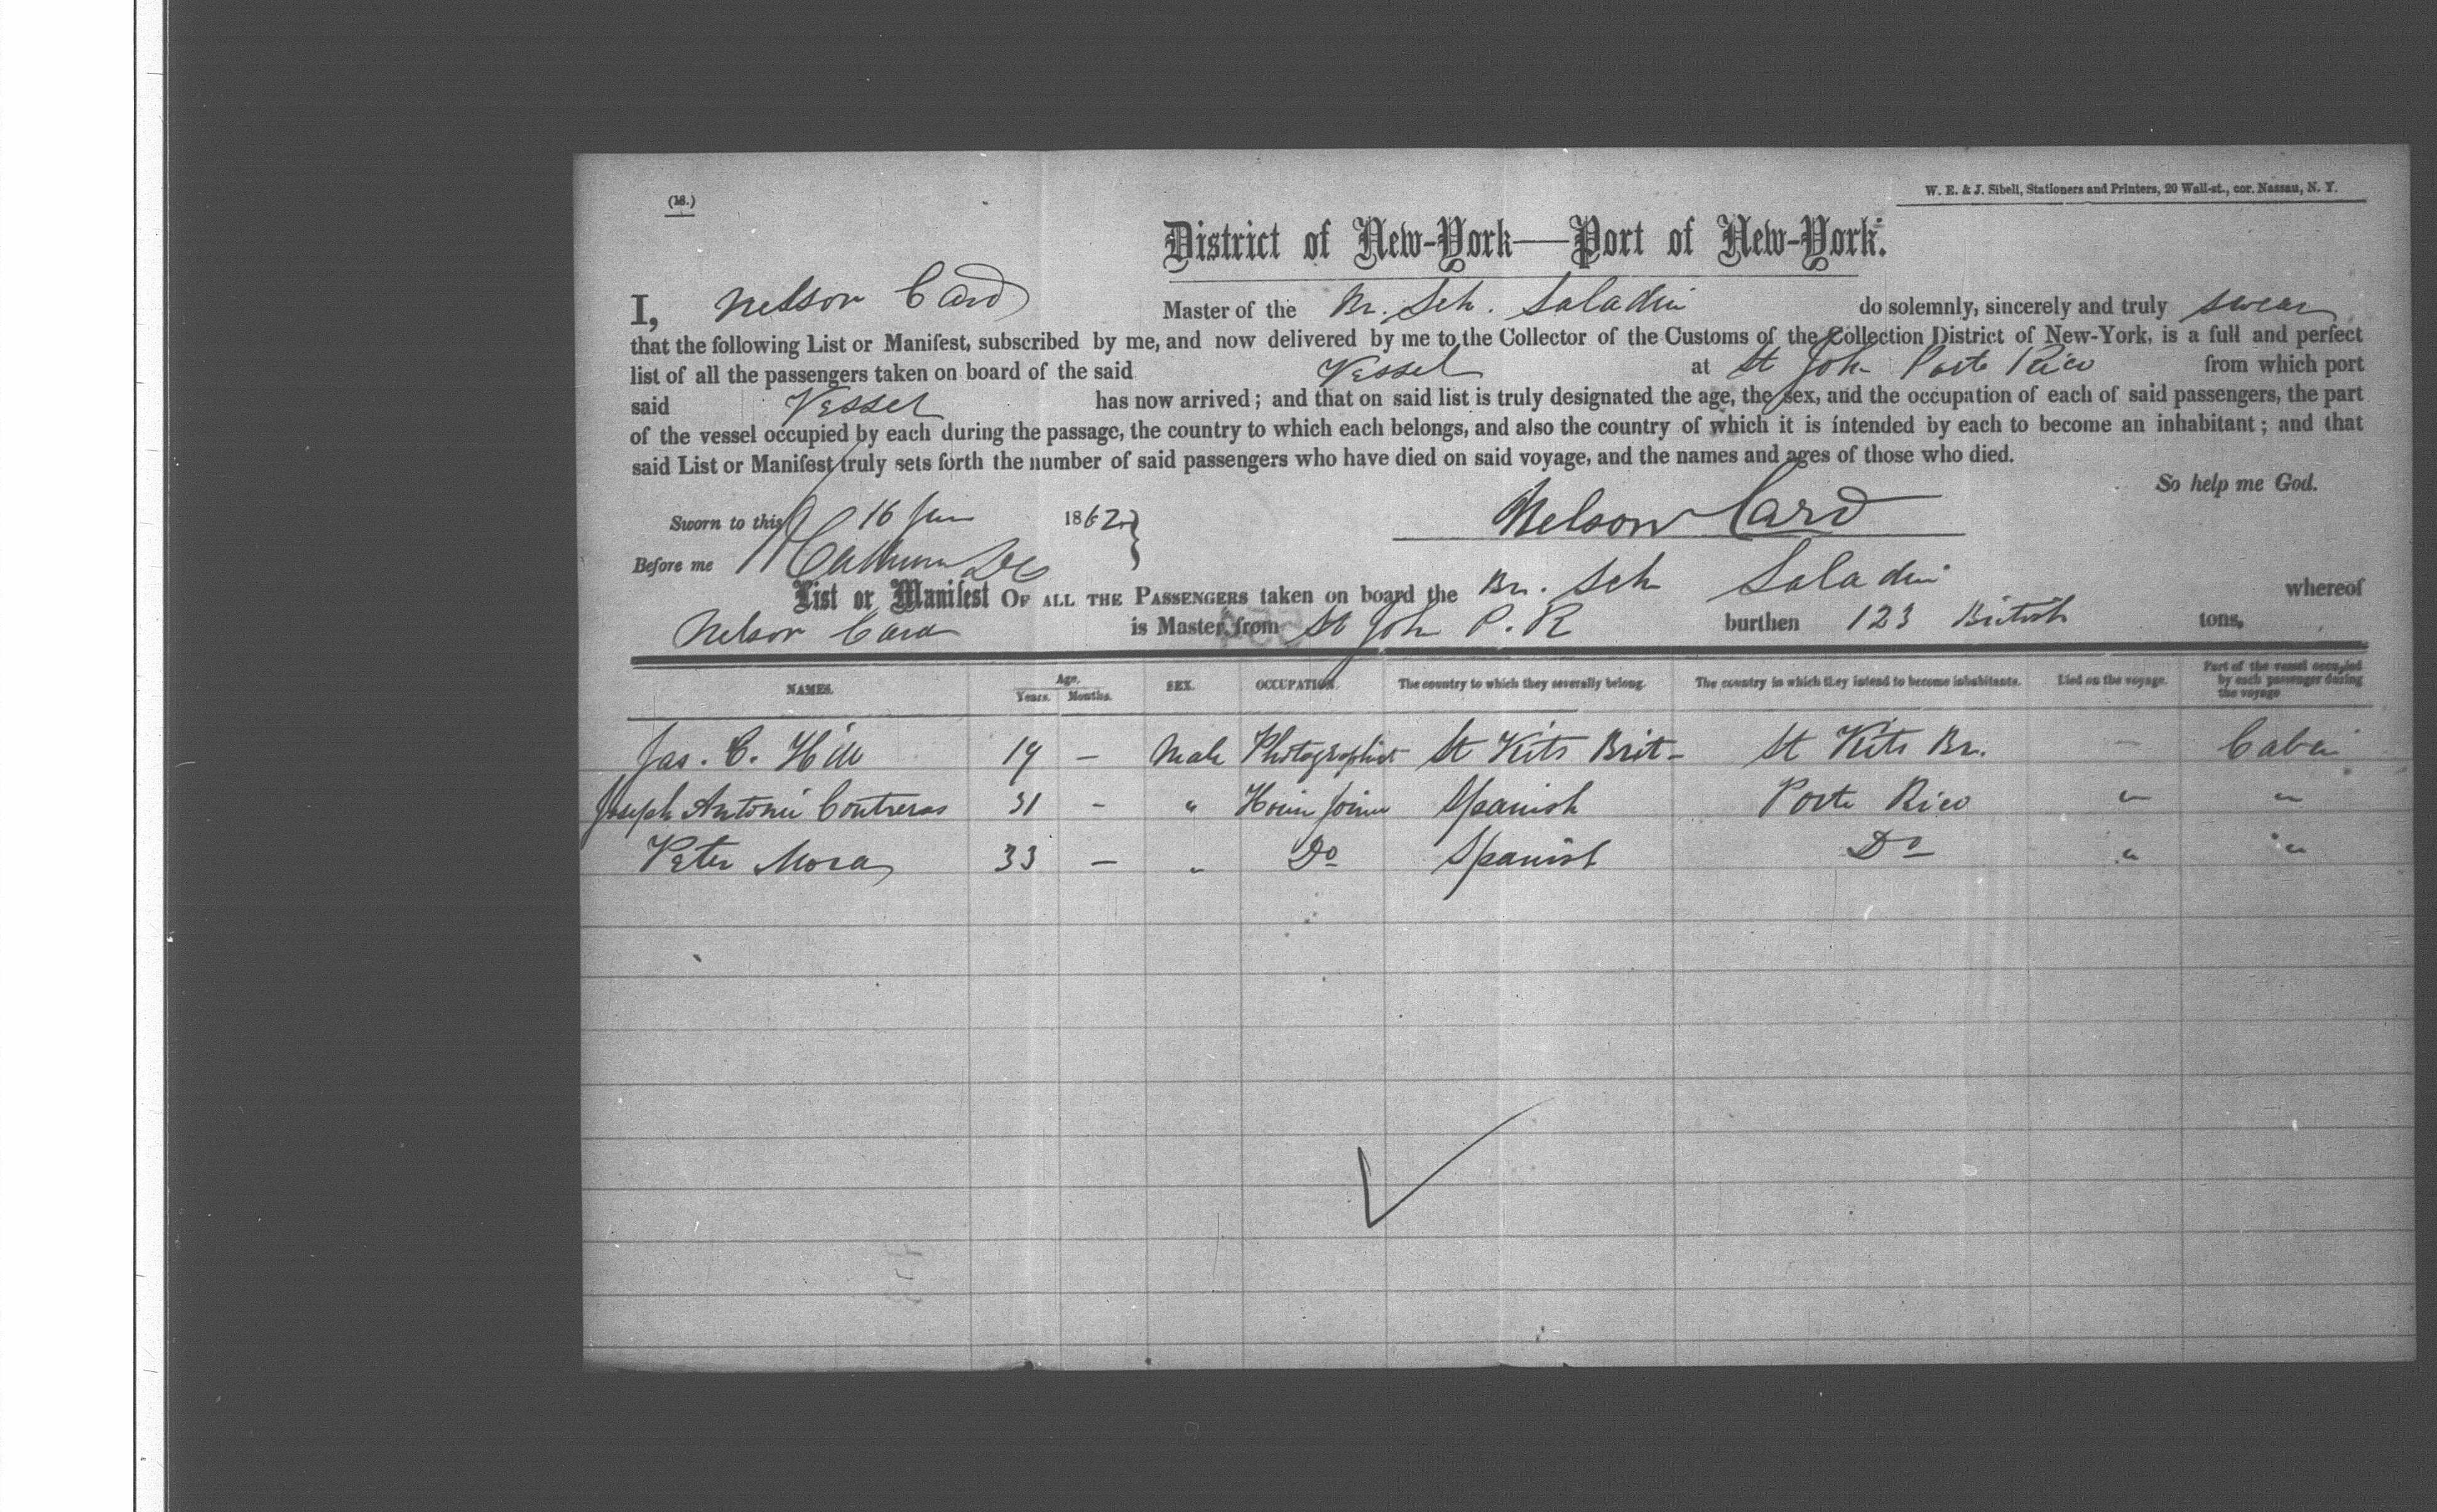 (18.)
W. E. & J. Sibell, Stationers and Printers, 20 Wall-st., cor. Nassau, N. Y.
District of New-York—Port of New-York.
I, Nelson Card Master of the Br. Sch. Saladin do solemnly, sincerely and truly swear
that the following List or Manifest, subscribed by me, and now delivered by me to the Collector of the Customs of the Collection District of New-York, is a full and perfect
list of all the passengers taken on board of the said Vessel at St John Porto Rico from which port
said Vessel has now arrived; and that on said list is truly designated the age, the sex, and the occupation of each of said passengers, the part
of the vessel occupied by each during the passage, the country to which each belongs, and also the country of which it is intended by each to become an inhabitant; and that
said List or Manifest truly sets forth the number of said passengers who have died on said voyage, and the names and ages of those who died.
So help me God.
Sworn to this 16 1862
Nelson Card
Before me
List or Manifest OF ALL THE PASSENGERS taken on board the Br. Sch Saladin whereof
Nelson Card is Master, from St John P. R burthen 123 British tons,
NAMES. Age. Years. Months. SEX. OCCUPATION. The country to which they severally belong. The country in which they intend to become inhabitants. Died on the voyage. Part of the vessel occupied by each passenger during the voyage
Jas. C. Hill 19 — Male Photographist St Kits Brit - St Kits Br. — Cabin
Joseph Antonio Contreras 31 - " House Joiner Spanish Porto Rico " "
Peter Mora 33 — " Do Spanish Do " "